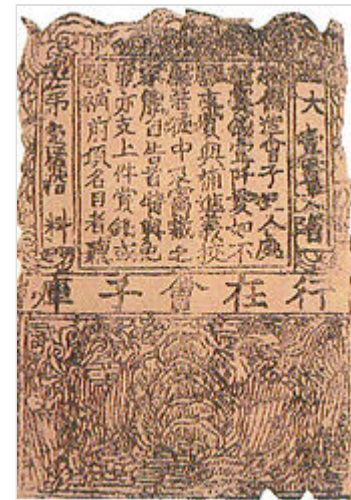 大壹貫文省
敕偽造會子犯人處
斬賞錢壹阡貫如不
願支賞與補進義校
尉若徒中及窩藏之
家能自告首特與免
罪亦支上件賞錢或
願補前項名目者聽
第 料
行在會子庫